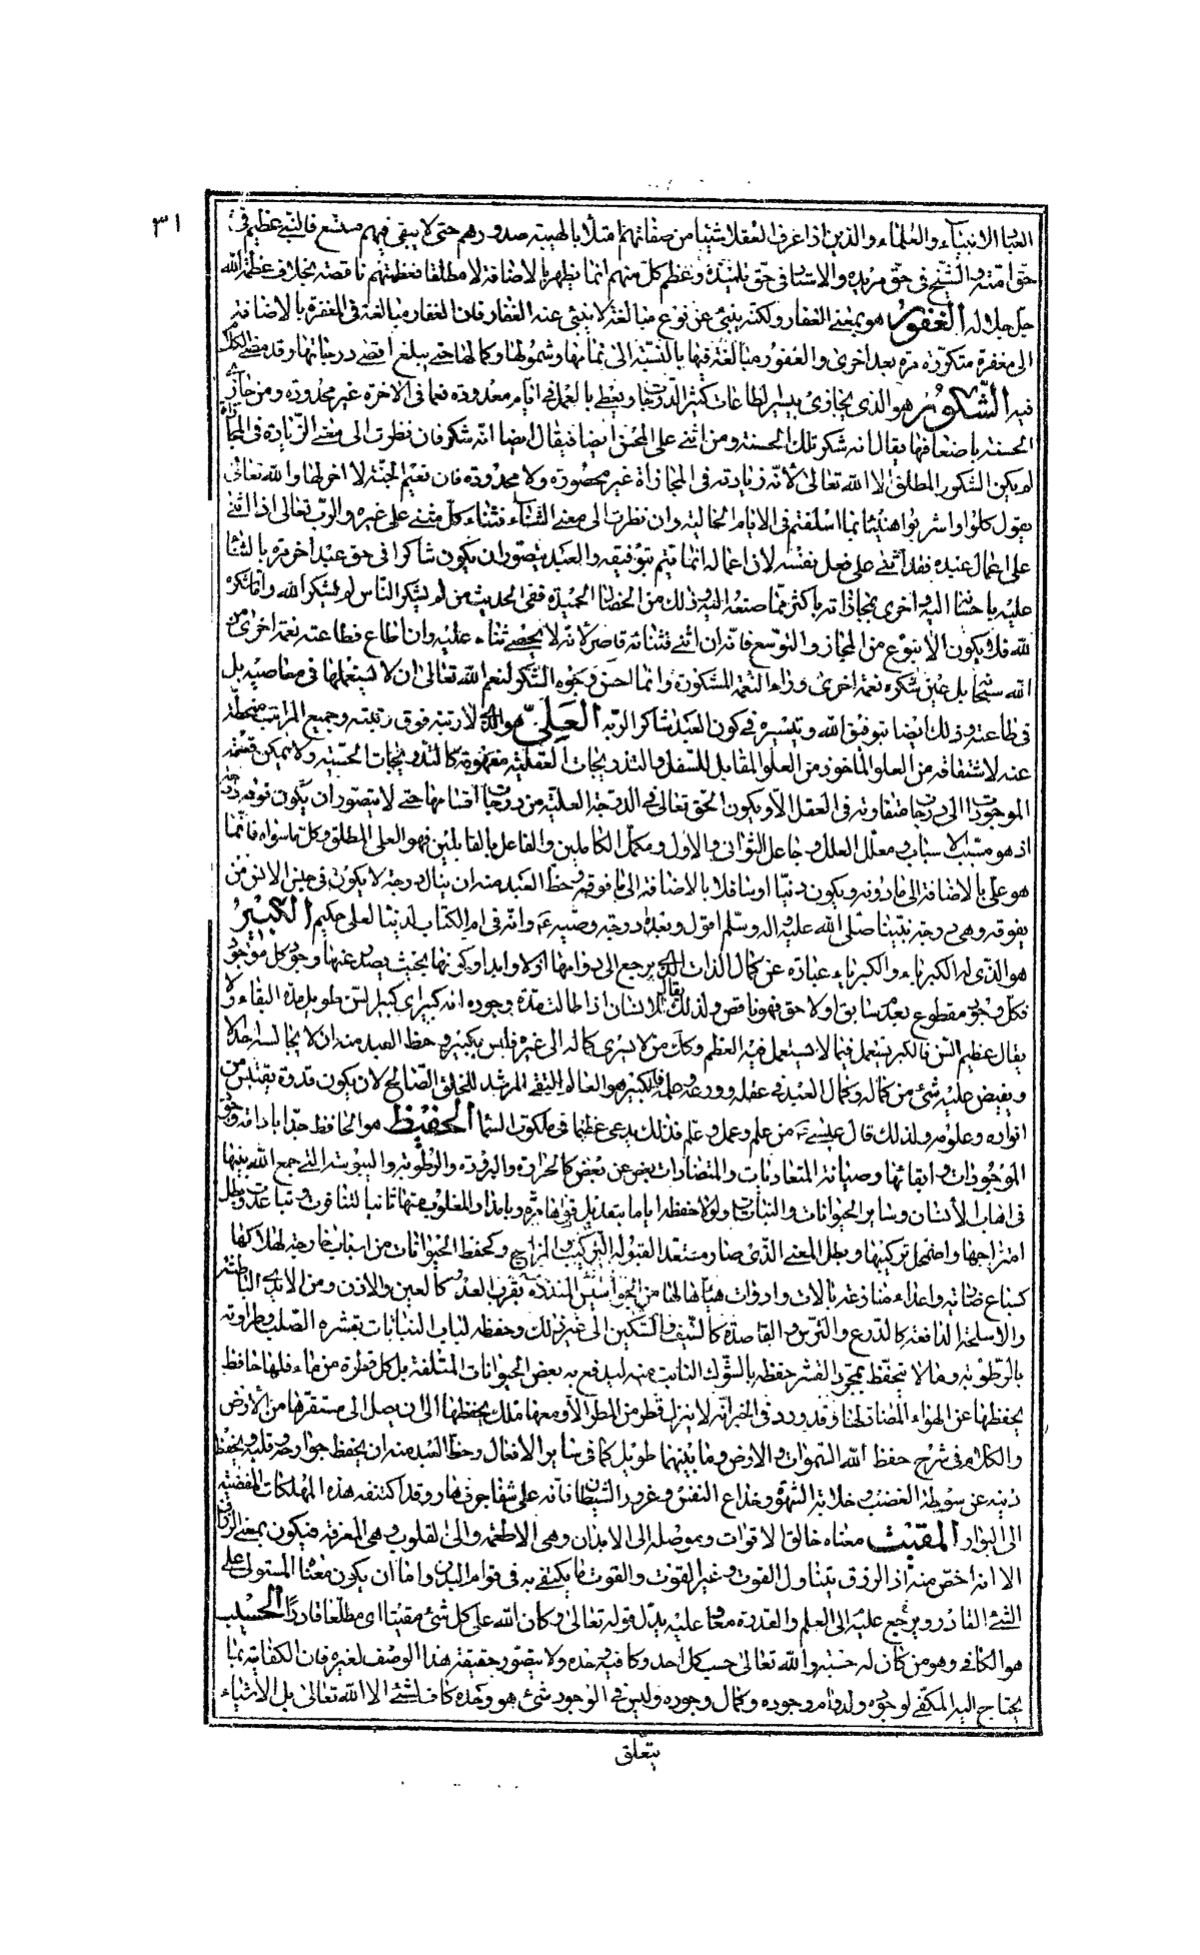 ٣١
العباد الانبياء والعلماء والذين اذا عرف العقلاء شيئا من صفاتهم امتلأ بالهيبة صدورهم حتى لا يبقى فيهم متسع فالنبي عظيم في
حق امته والشيخ في حق مريده والاستاد في حق تلميذه وعظم كل منهم انما يظهر بالاضافة لا مطلقا فعظمتهم ناقصة بخلاف عظمة الله
جل جلاله الغفور هو بمعنى الغفار ولكنه ينبئ عن نوع مبالغة لا ينبئ عنه الغفار فان الغفار مبالغة في المغفرة بالاضافة
الى مغفرة متكررة مرة بعد اخرى والغفور مبالغة فيها بالنسبة الى تمامها وشمولها وكمالها حتى يبلغ اقصى درجاتها وقد مضى الكلام
فيه الشكور هو الذي يجازي بيسير الطاعات كثير الدرجات ويعطي بالعمل في ايام معدودة نعما في الاخرة غير محدودة ومن جازى
الحسنة باضعافها يقال انه شكر تلك الحسنة ومن اثنى على المحسن ايضا فيقال ايضا انه شكر فان نظرت الى معنى الزيادة في المجازاة
لم يكن الشكور المطلق الا الله تعالى لانه زيادته في المجازاة غير محصورة ولا محدودة فان نعيم الجنة لا اخر لها والله تعالى
يقول كلوا واشربوا هنيئا بما اسلفتم في الايام الخالية وان نظرت الى معنى الثناء فثناء كل مثني على غيره والرب تعالى اذا اثنى
على اعمال عبده فقد اثنى على فعل نفسه لان اعماله انما يتم بتوفيقه والعبد يتصور ان يكون شاكرا في حق عبد اخر مرة بالثناء
عليه باحسانه اليه واخرى بمجازاته باكثر مما صنعه اليه وذلك من الخصال الحميدة ففي الحديث من لم يشكر الناس لم يشكر الله واما شكره
لله فلا يكون الا بنوع من المجاز والتوسع فانه ان اثنى فثنائه قاصر لانه لا يحصي ثناء عليه وان اطاع فطاعته نعمة اخرى من
الله سبحانه بل عين شكره نعمة اخرى وراء النعمة المشكورة وانما احسن وجوه الشكر لنعم الله تعالى ان لا يستعملها في معاصيه بل
في طاعته وذلك ايضا بتوفيق الله وتيسيره في كون العبد شاكرا لربه العلي هو الذي لا رتبة فوق رتبته وجميع المراتب منحطة
عنه لاشتقاقه من العلو المأخوذ من العلو المقابل للسفل والتدريجات العقلية مفهومة كالتدريجات الحسية ولا يمكن قسمة
الموجودات الى درجات متفاوتة في العقل الا ويكون الحق تعالى في الدرجة العلية من درجات اقسامها حتى لا يتصور ان يكون فوقه درجة
اذ هو مسبب الاسباب ومعلل العلل وجاعل الثواني والاول ومكمل الكاملين والفاعل بالقابلين فهو العلي المطلق وكل ما سواه فانما
هو علي بالاضافة الى ما دونه ويكون دنيا او سافلا بالاضافة الى ما فوقه وحظ العبد منه ان ينال درجة لا يكون في جنس الانس من
يفوقه وهي درجة نبينا صلى الله عليه واله وسلم اقول وبعده درجة وصيه ع وانه في ام الكتاب لدينا لعلي حكيم الكبير
هو الذي له الكبرياء والكبرياء عبارة عن كمال الذات الذي يرجع الى دوامها ازلا وابدا وكونها بحيث يصدر عنها وجود كل موجود
فكل وجود مقطوع بعدم سابق او لاحق فهو ناقص ولذلك يقال للانسان اذا طالت مدة وجوده انه كبير اي كبير السن طويل مدة البقاء ولا
يقال عظيم السن فالكبر يستعمل فيما لا يستعمل فيه العظم وكل من لا يسري كماله الى غيره فليس بكبير وحظ العبد منه ان لا يجالسه احد الا
ويفيض عليه شئ من كماله وكمال العبد في عقله وورعه وعلمه فالكبير هو العالم التقي المرشد للخلق الصالح لان يكون قدوة يقتبس من
انواره وعلومه ولذلك قال عيسى ع من علم وعمل وعلم فذلك يدعى عظيما في ملكوت السماء الحفيظ هو الحافظ جدا بادامة وجود
الموجودات وابقائها وصيانة المتعاديات والمتضادات بعض عن بعض كالحرارة والبرودة والرطوبة واليبوسة التي جمع الله بينها
في اهاب الانسان وسائر الحيوانات والنبات ولولا حفظه اياها بتعديل قواها مرة وبامداد المغلوب منها ثانيا لتنافرت وتباعدت وبطل
امتزاجها واضمحل تركيبها وبطل المعنى الذي صار مستعدا لقبوله التركيب والمزاج وكحفظ الحيوانات من اسباب خارجة لهلاكها
كسباع ضارية واعداء منازعة بالات وادوات هيأها لها من الجواسيس المنذرة بقرب العدو كالعين والاذن ومن الايدي الباطشة
والاسلحة الدافعة كالدرع والترس والقاصدة كالسيف والسكين الى غير ذلك وحفظه لباب النباتات بقشره الصلب وطراوته
بالرطوبة وما لا يتحفظ بمجرد القشر حفظه بالشوك النابت منه ليدفع به بعض الحيوانات المتلفة بل كل قطرة من ماء فلها حافظ
يحفظها عن الهواء المضاد لها وقد ورد في الخبر انه لا ينزل قطر من المطر الا ومعها ملك يحفظها الى ان يصل الى مستقرها من الارض
والكلام في شرح حفظ الله السموات والارض وما بينهما طويل كما في سائر الافعال وحظ العبد منه ان يحفظ جوارحه وقلبه ويحفظ
دينه عن سوطة الغضب وخلابة الشهوة وخداع النفس وغرور الشيطان فانه على شفا جرف هار وقد اكتنفه هذه المهلكات المفضية
الى البوار المقيت معناه خالق الاقوات وموصلها الى الابدان وهي الاطعمة والى القلوب وهي المعرفة فيكون بمعنى الرزاق
الا انه اخص منه اذ الرزق يتناول القوت وغير القوت والقوت ما يكتفي به في قوام البدن واما ان يكون معناه المستولي على
الشئ القادر ويرجع عليه الى العلم والقدرة معا وعليه يدل قوله تعالى وكان الله على كل شئ مقيتا اي مطلعا قادرا الحسيب
هو الكافي وهو من كان له حسبه والله تعالى حسب كل احد وكافيه وحده ولا يتصور حقيقة هذا الوصف لغيره فان الكفاية بما
يحتاج اليه المكفي لوجوده ولدوام وجوده وكمال وجوده وليس في الوجود شئ هو وحده كاف لشئ الا الله تعالى بل الاشياء
يتعلق